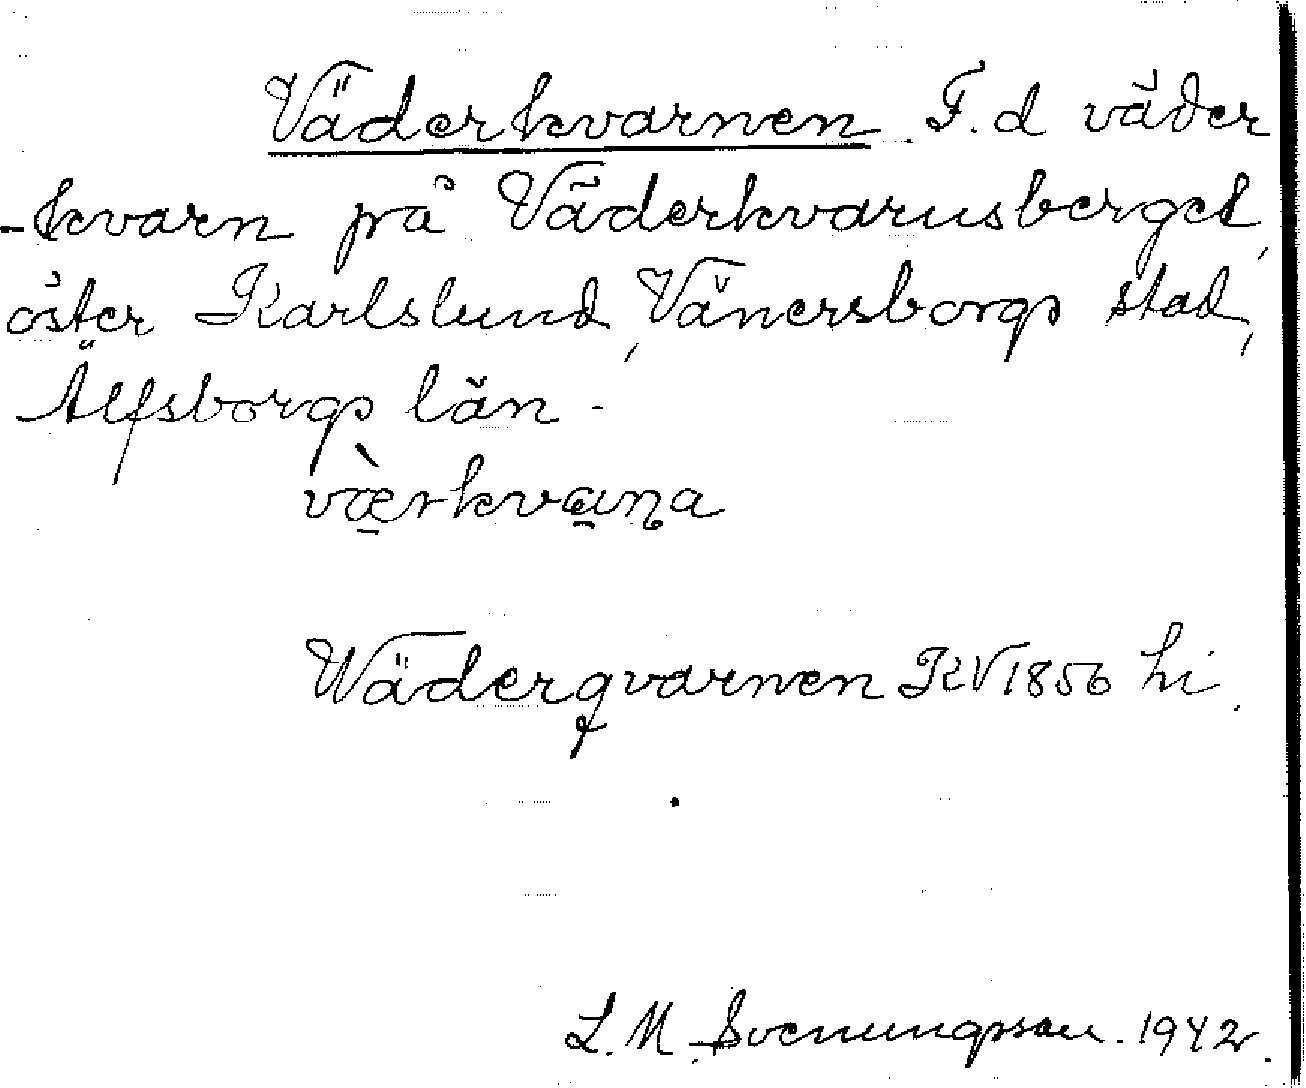 Väderkvarnen. F.d väder
-kvarn på Väderkvarnsberget,
öster Karlslund, Vänersborgs stad,
Älfsborgs län.
væ̀rkvaɳa
Wäderqvarnen KV 1856 hi.
L. M. Svenungsson. 1942.